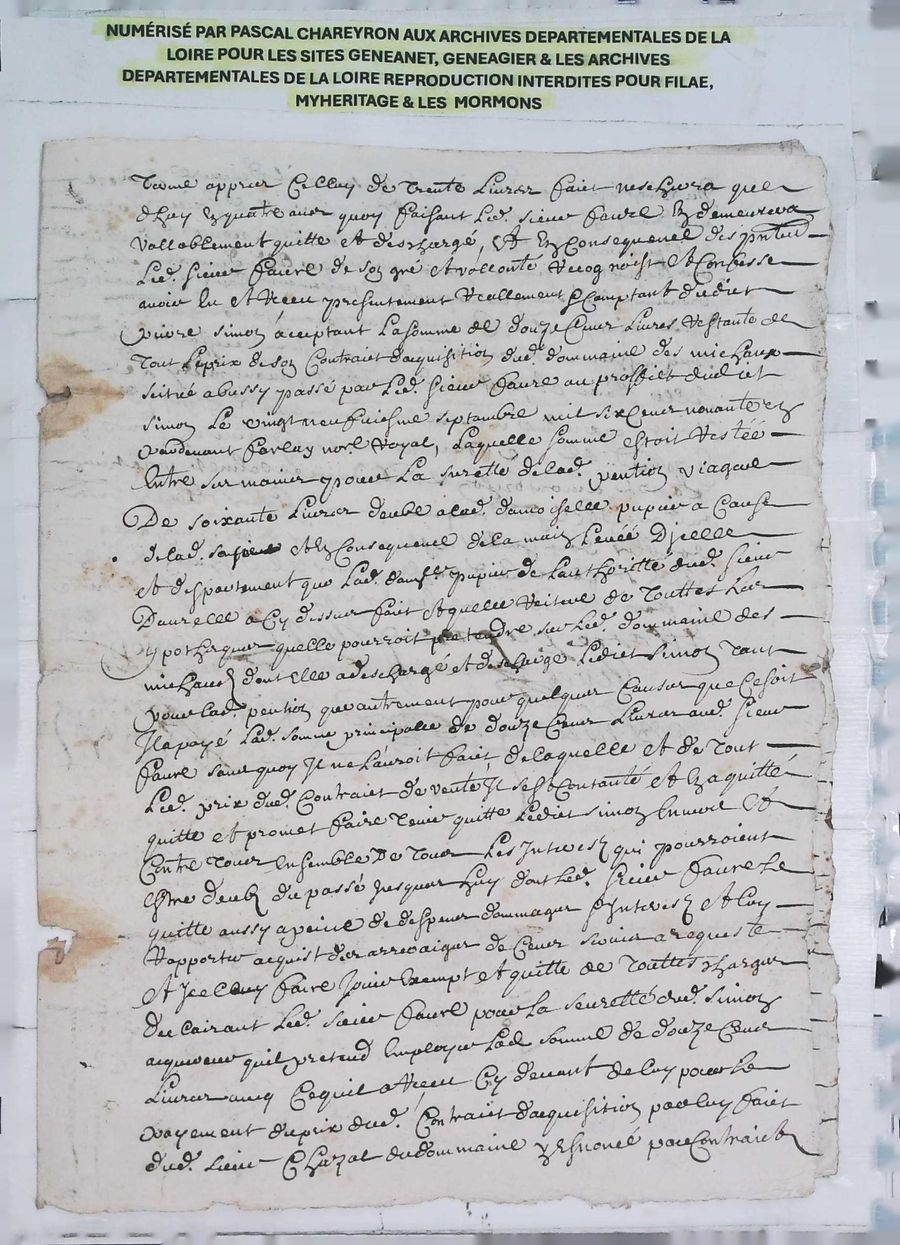 NUMÉRISÉ PAR PASCAL CHAREYRON AUX ARCHIVES DEPARTEMENTALES DE LA
LOIRE POUR LES SITES GENEANET, GENEAGIER & LES ARCHIVES
DEPARTEMENTALES DE LA LOIRE REPRODUCTION INTERDITES POUR FILAE,
MYHERITAGE & LES MORMONS
terme apprier celluy de trente livres faict que
dhuy en quatre ans quoy faisant led. sieur faure en demeurera
vallablement quitte et deschargé, et en consequence des
led. sieur faure de son gré et vollonté recognoist et confesse
avoir eu et receu presentement reallement & comptant dudict
simon acceptant la somme de douze cens livres restante de
tout le prix de son contraict dacquisition dud. dommaine des michaux
scitué a bussy passé par led. sieur faure au proffict dudict
simon le vingt neufviesme septambre mil six cens nonante et
pardevant parlay nore. royal, laquelle somme estoit restée
entre ses mains pour la suretté de lad. pention viagere
De soixante livres deube a lad. damoiselle pupier a cause
de lad. et en consequence de la main levée dicelle
et despartement que lad. dam.lle pupier de lauthoritté dud. sieur
Daurelle a cy dessus faict et quelle reitere de touttes les
ypotheques quelle pourroit pretendre sur led. dommaine des
michaux dont elle a deschargé et descharge ledict simon tant
pour lad. pention quautrement pour quelques causes que ce soit
Il a payé lad. somme principalle de douze cens livres aud. sieur
faure sans quoy il ne lauroit faict de laquelle et de tout
led. prix dud. contraict de vente il sest contanté et en a quitté
quitte et promet faire tenir quitte ledict simon envers et
contre tous ensemble de tous les interest qui pourroient
estre deub du passé jusques huy dont led. sieur faure le
quitte aussy a peine de despens dommages & interest et luy
rapporter acquist des arreraiges de cens a requeste
et icelluy faire jouir exempt et quitte de touttes charges
declairant led. sieur faure pour la seuretté dud. simon
acquereur quil pretend employer lad. somme de douze cens
livres avec ce quil a receu cy devant de luy pour le
payement du prix dud. contraict dacquisition par luy faict
dud. sieur Chazal du dommaine par contraict